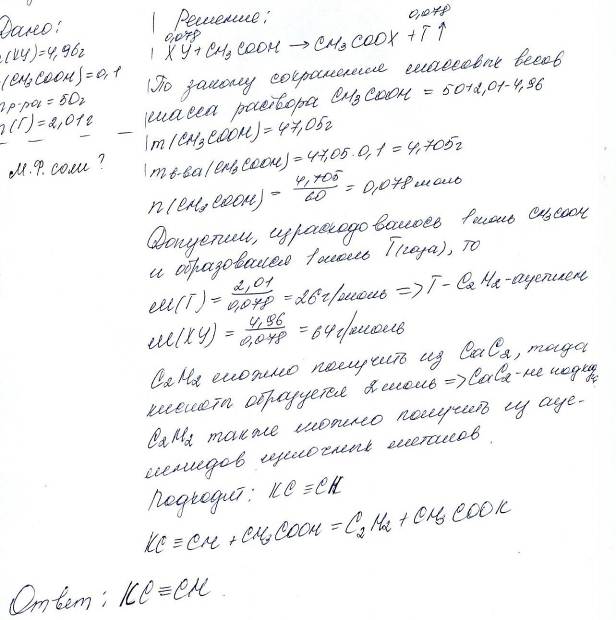 Дано:
(XY)=4,96г
(CH3COOH)=0,1
р-ра=50г
(Г)=2,01г
М.Ф. соли?
Решение:
0,078 0,078
XY+CH3COOH→CH3COOX+Г↑
По закону сохранение массовых весов
масса раствора CH3COOH = 50+2,01-4,96
m(CH3COOH)=47,05г
m в-ва(CH3COOH)=47,05·0,1=4,705г
n(CH3COOH)=4,705/60=0,078моль
Допустим, израсходовалось 1моль CH3COOH
и образовался 1моль Г(газа), то
M(Г)=2,01/0,078=26г/моль=>Г-C2H2-ацетилен
M(XY)=4,96/0,078=64г/моль
C2H2 можно получить из CaC2, тогда
кислоты образуется 2моль=>CaC2-не подход
C2H2 также можно получить из аце-
щелочных металов.
Подходит: KC≡CH
KC≡CH+CH3COOH=C2H2+CH3COOK
Ответ: KC≡CH.